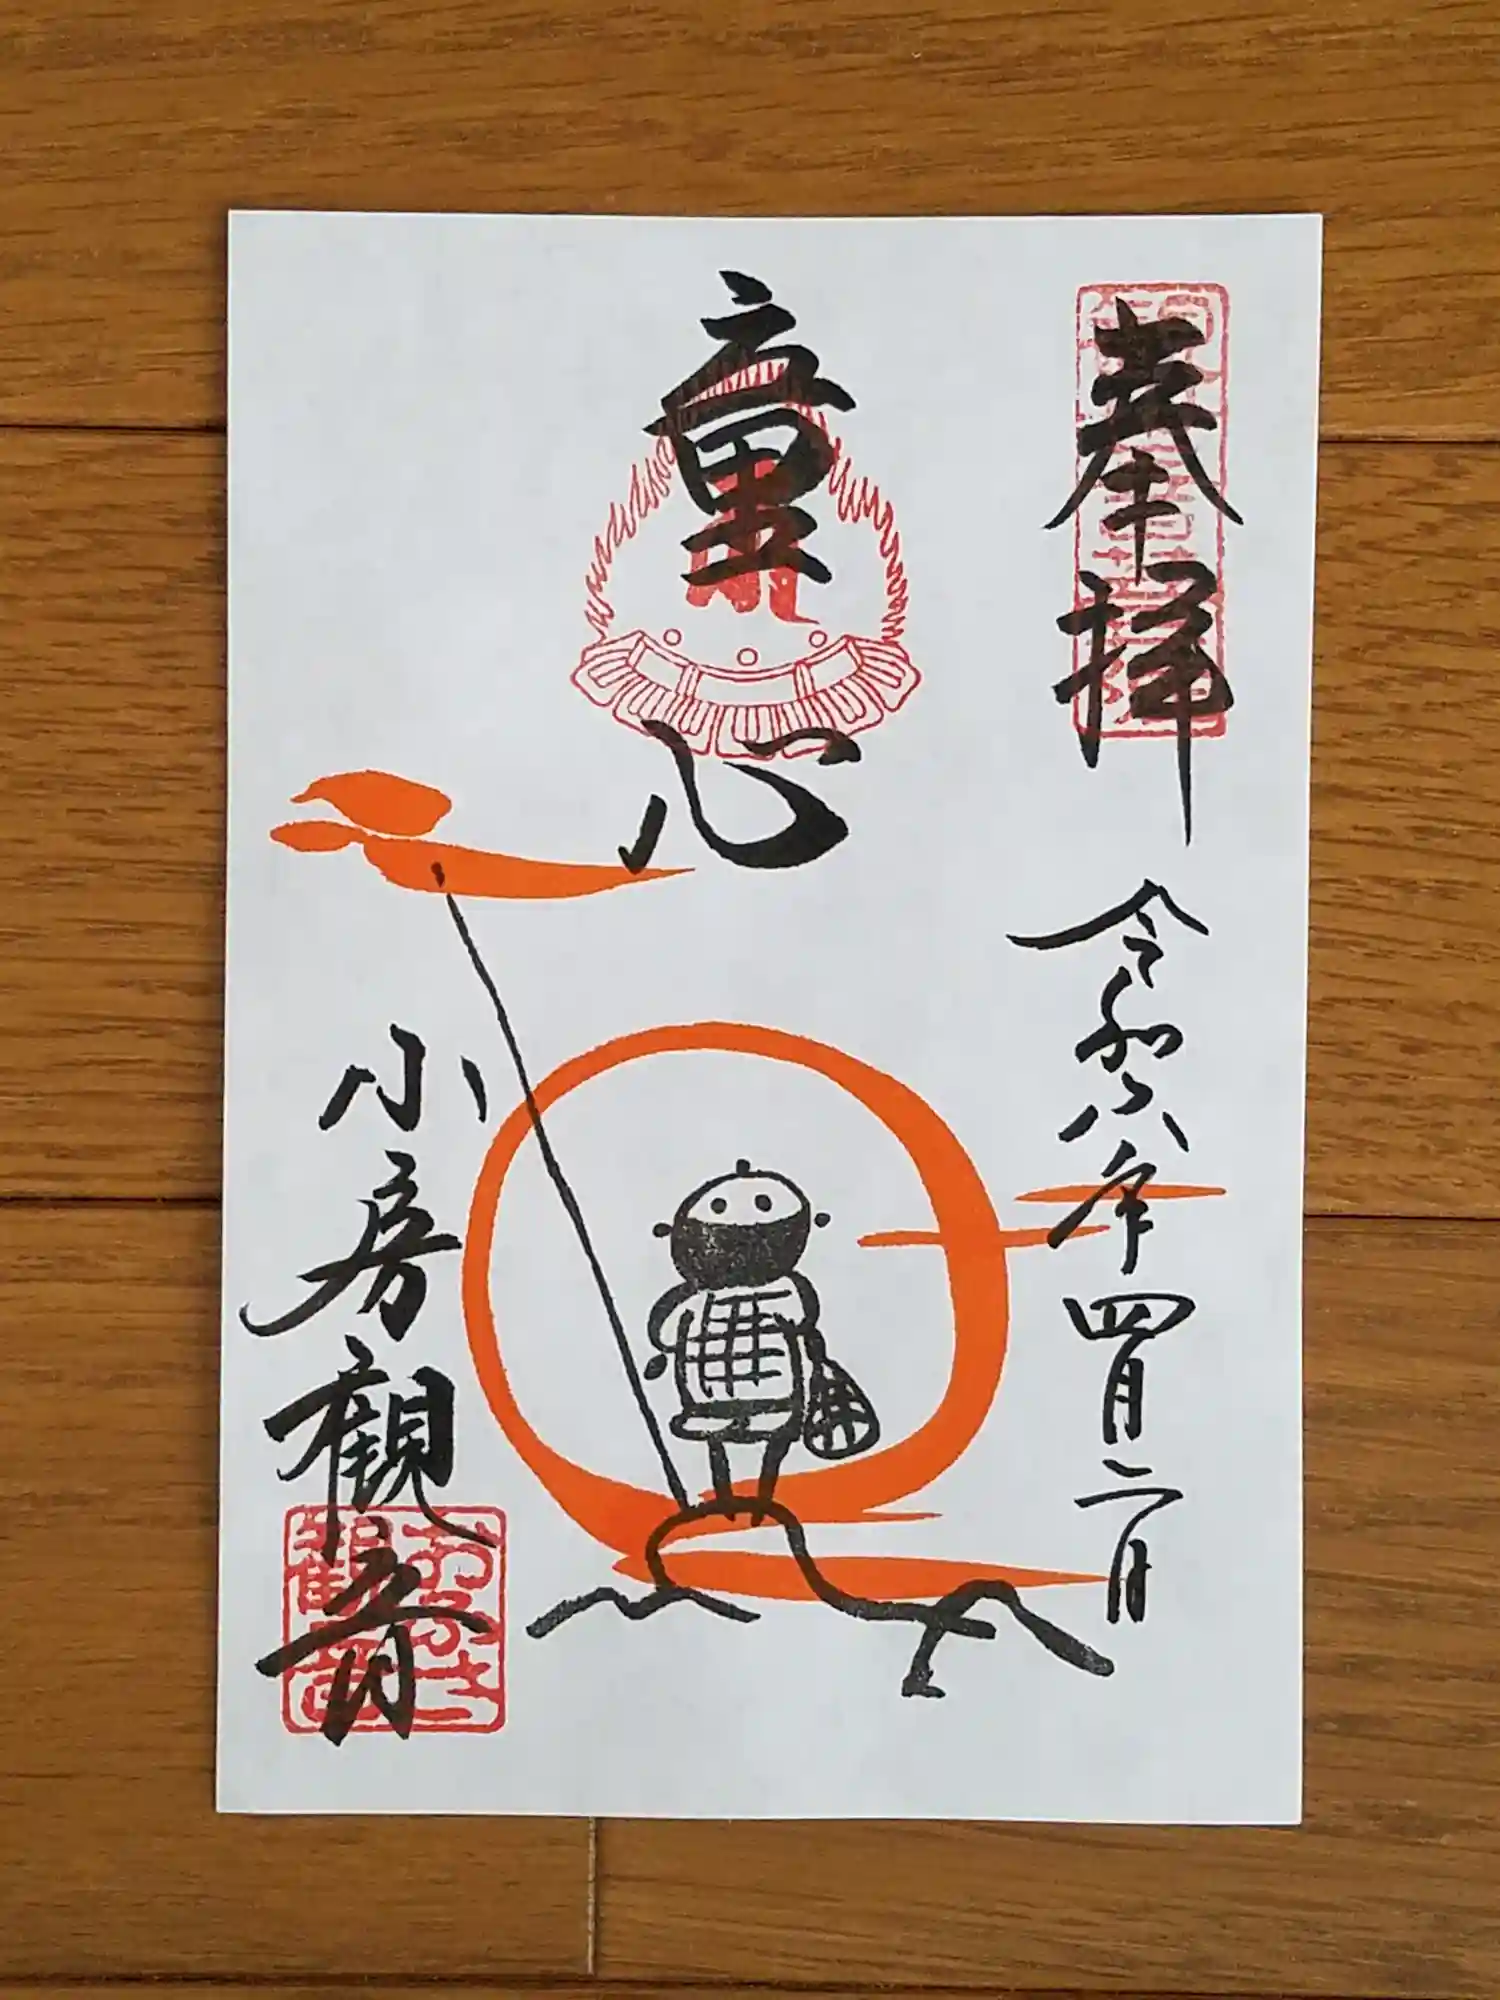 奉拝
令和六年四月二日
童心
小房観音
おふさ
観音